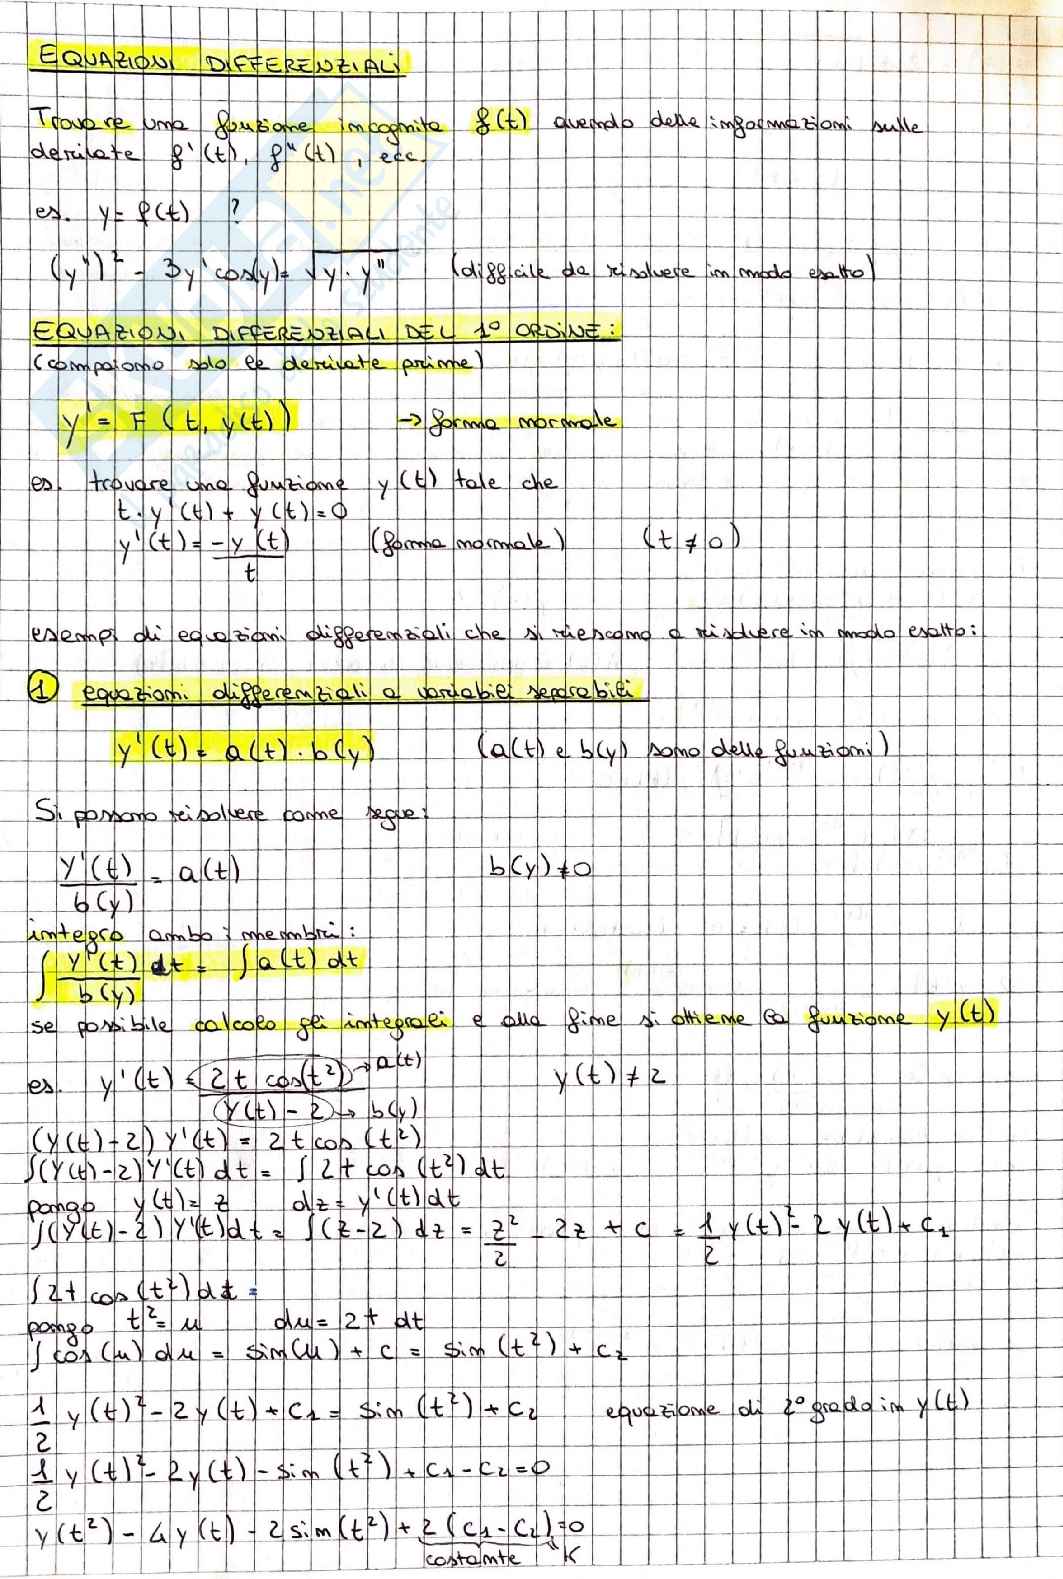 EQUAZIONI DIFFERENZIALI
Trovare una funzione incognita f(t) avendo delle informazioni sulle
derivate f'(t), f"(t), ecc.
es. y = f(t) ?
(y")² - 3y' cos(y) = √(y · y") (difficile da risolvere in modo esatto)
EQUAZIONI DIFFERENZIALI DEL 1° ORDINE:
(compaiono solo le derivate prime)
y' = F (t, y(t)) → forma normale
es. trovare una funzione y(t) tale che
t · y'(t) + y(t) = 0
y'(t) = -y(t)/t (forma normale) (t ≠ 0)
esempi di equazioni differenziali che si riescono a risolvere in modo esatto:
1 equazioni differenziali a variabili separabili
y'(t) = a(t) · b(y) (a(t) e b(y) sono delle funzioni)
Si possono risolvere come segue:
y'(t)/b(y) = a(t) b(y) ≠ 0
integro ambo i membri:
∫ y'(t)/b(y) dt = ∫ a(t) dt
se possibile calcolo gli integrali e alla fine si ottiene la funzione y(t)
es. y'(t) = 2t cos(t²)/(y(t) - 2) → a(t) → b(y) y(t) ≠ 2
(y(t) - 2) y'(t) = 2t cos(t²)
∫(y(t) - 2) y'(t) dt = ∫ 2t cos(t²) dt
pongo y(t) = z dz = y'(t) dt
∫(y(t) - 2) y'(t) dt = ∫(z - 2) dz = z²/2 - 2z + c = 1/2 y(t)² - 2y(t) + c₁
∫ 2t cos(t²) dt =
pongo t² = u du = 2t dt
∫ cos(u) du = sin(u) + c = sin(t²) + c₂
1/2 y(t)² - 2y(t) + c₁ = sin(t²) + c₂ equazione di 2° grado in y(t)
1/2 y(t)² - 2y(t) - sin(t²) + c₁ - c₂ = 0
y(t²) - 4y(t) - 2sin(t²) + 2(c₁ - c₂) = 0
costante " K